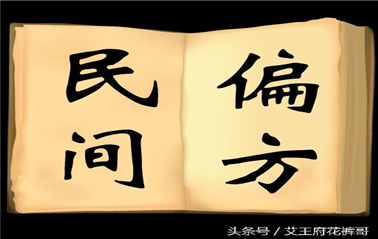 民间
偏方
头条号／艾王府花裤哥